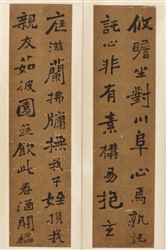 攸瞻坐對川阜心焉孰
託心非有素構易抱玄
庭滋蘭拂牖撫我子姪攜我
親友茹彼園蔬飲此春酒開櫺